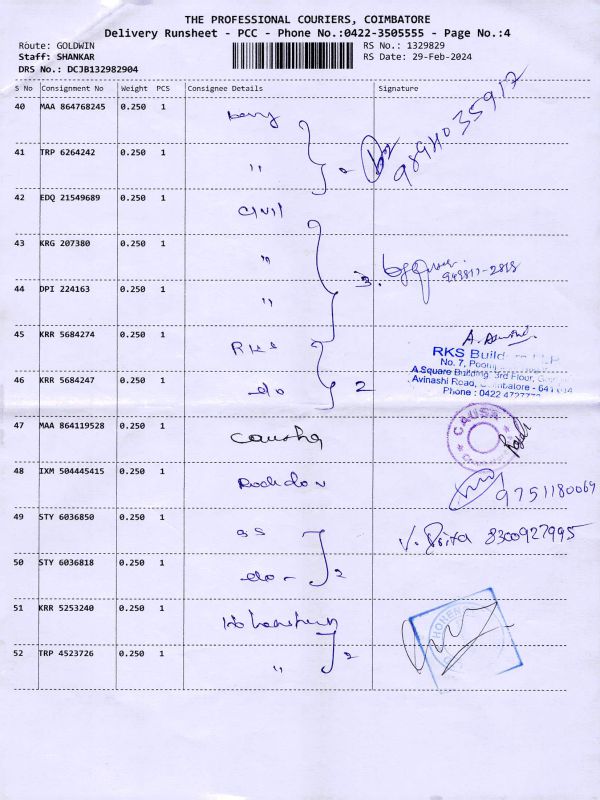 THE PROFESSIONAL COURIERS, COIMBATORE
Delivery Runsheet - PCC - Phone No.:0422-3505555 - Page No.:4
Route: GOLDWIN RS No.: 1329829
Staff: SHANKAR RS Date: 29-Feb-2024
DRS No.: DCJB132982904
S No Consignment No Weight PCS Consignee Details Signature
40 MAA 864768245 0.250 1
41 TRP 6264242 0.250 1 "
42 EDQ 21549689 0.250 1 Civil
43 KRG 207380 0.250 1 "
3.
44 DPI 224163 0.250 1 "
45 KRR 5684274 0.250 1 RKS
RKS
46 KRR 5684247 0.250 1 do 2
No. 7,
A Square Building, 3rd Floor,
Avinashi Road,
Phone : 0422
47 MAA 864119528 0.250 1
CAUSA
48 IXM 504445415 0.250 1
9751180069
49 STY 6036850 0.250 1 gs
8300927995
50 STY 6036818 0.250 1 do - 2
51 KRR 5253240 0.250 1
52 TRP 4523726 0.250 1 " 2